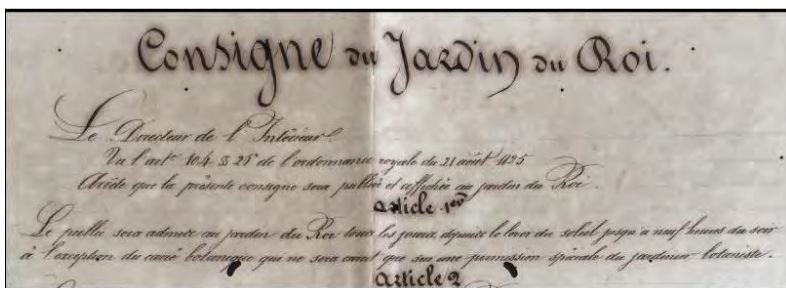 Consigne du Jardin du Roi.
Le Directeur de l'Intérieur
Vu l'art. 104 § 25 de l'ordonnance royale du 21 août 1825
Arrête que la présente consigne sera publiée et affichée au jardin du Roi.
article 1er
Le public sera admis au jardin du Roi tous les jours, depuis le lever du soleil jusqu'a neuf heures du soir
à l'exception du carré botanique qui ne sera ouvert que sur une permission spéciale du jardinier botaniste.
article 2